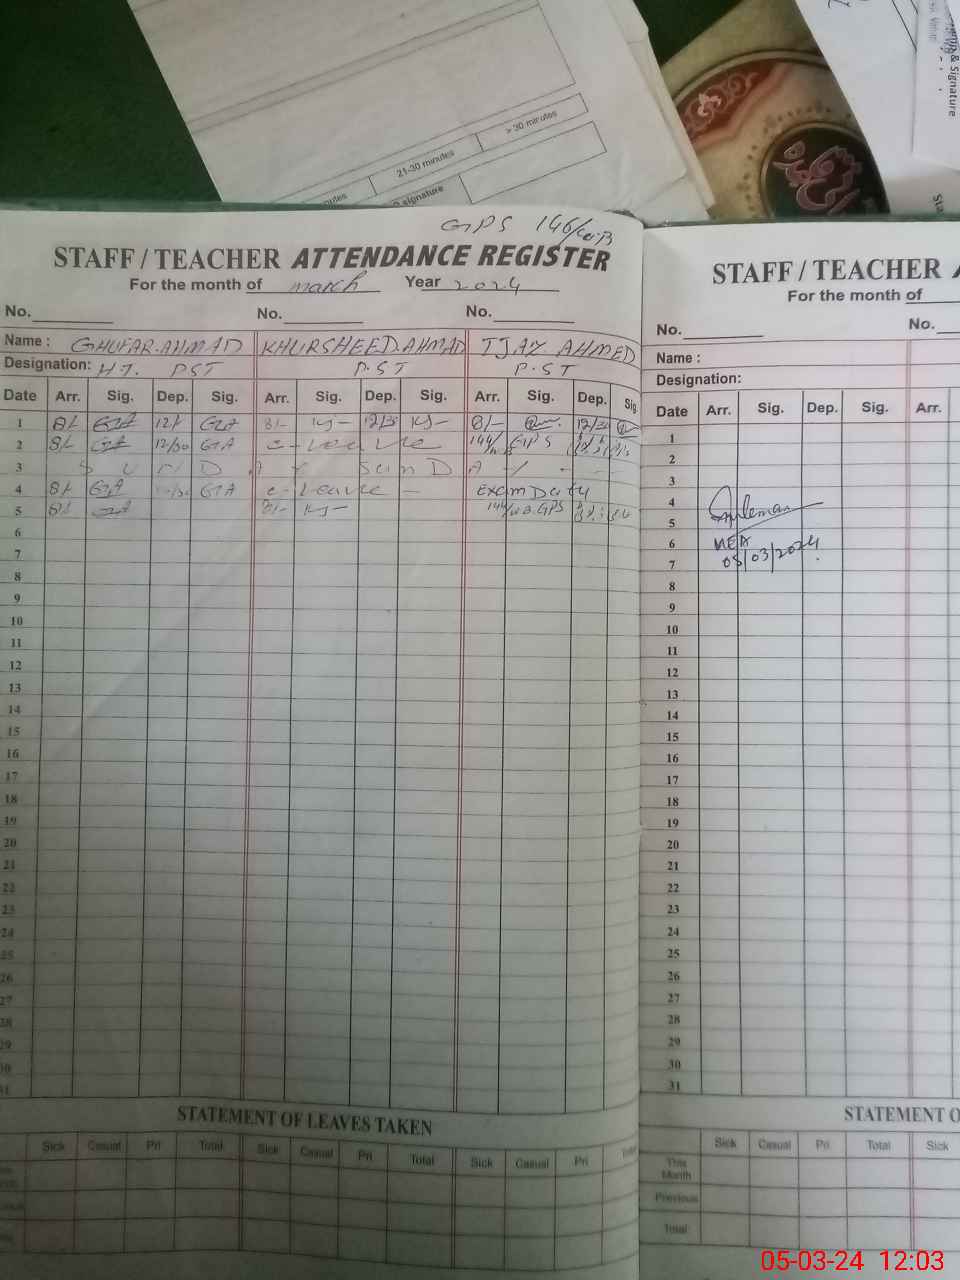 > 30 minutes
21-30 minutes
signature
& Signature
GPS 146/W-B
STAFF / TEACHER ATTENDANCE REGISTER
For the month of march Year 2024
No. No. No.
Name : GHUFAR.AHMAD KHURSHEED.AHMAD IJAZ AHMED
Designation: H.T. PST P.ST P.ST
Date Arr. Sig. Dep. Sig. Arr. Sig. Dep. Sig. Arr. Sig. Dep. Sig
1 8/- GA 12/ GA 8/- KJ- 12/30 KJ- 8/- 12/30
2 8/- GA 12/30 GA c-Leave 144/ GPS
3 SUND A Y SunD A Y
4 8/- GA GA c-Leave - Exam Duty
5 8/- GA 8/- KJ- 144/W.B. GPS
6
7
8
9
10
11
12
13
14
15
16
17
18
19
20
21
22
23
24
25
26
27
28
29
30
31
STATEMENT OF LEAVES TAKEN
Sick Casual Pri Total Sick Casual Pri Total Sick Casual Pri
STAFF / TEACHER
For the month of
No. No.
Name :
Designation:
Date Arr. Sig. Dep. Sig. Arr.
1
2
3
4
5
6 MEA
7 05/03/2024
8
9
10
11
12
13
14
15
16
17
18
19
20
21
22
23
24
25
26
27
28
29
30
31
STATEMENT O
Sick Casual Pri Total Sick
This Month
Previous
Total
05-03-24 12:03